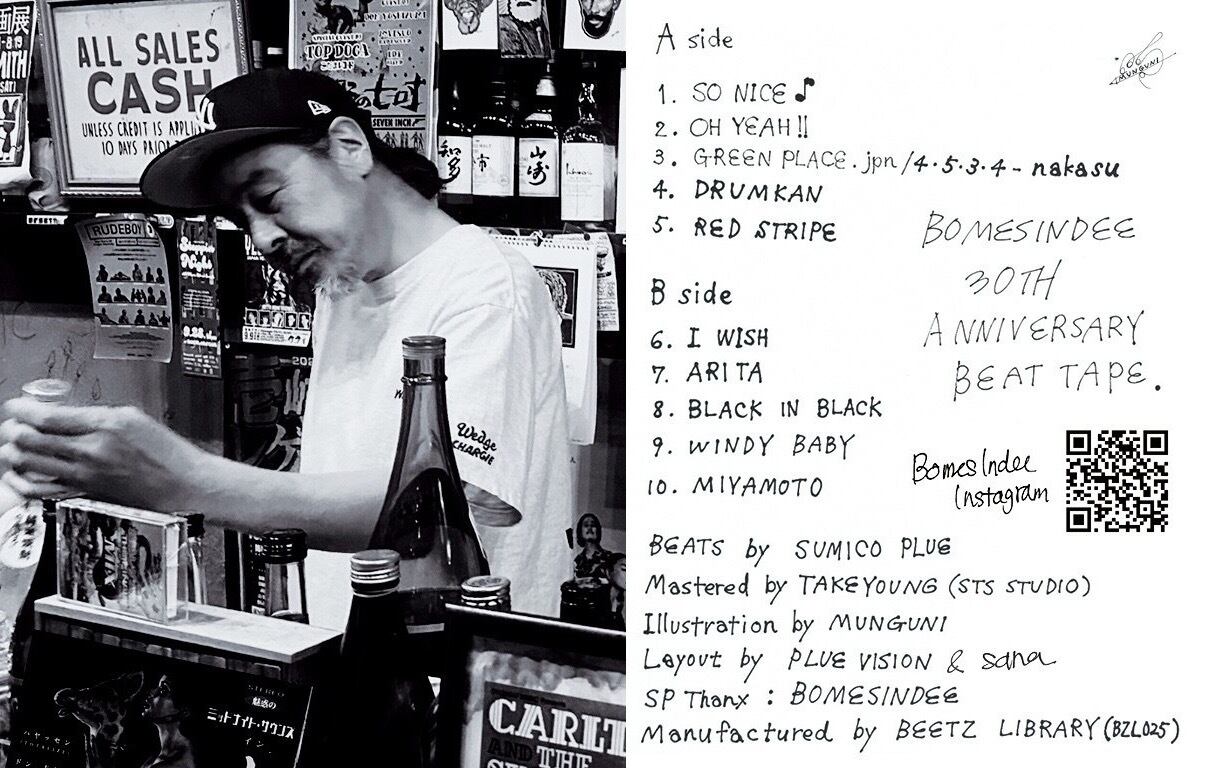 ALL SALES
CASH
UNLESS CREDIT IS
10 DAYS PRIOR
TOP DOCA
SEVEN INCH
知多
山崎
RUDEBOY
Wedge
CHARGIE
STEREO
魅惑の
ミッドナイト・サウンズ
イン・
CARLT
AND THE
A side
1. SO NICE♪
2. OH YEAH!!
3. GREEN PLACE.jpn/4・5・3・4-nakasu
4. DRUMKAN
5. RED STRIPE
B side
6. I WISH
7. ARITA
8. BLACK IN BLACK
9. WINDY BABY
10. MIYAMOTO
MUNGUNI
BOMESINDEE
30TH
ANNIVERSARY
BEAT TAPE.
BomesIndee
Instagram
BEATS by SUMICO PLUE
Mastered by TAKEYOUNG (STS STUDIO)
Illustration by MUNGUNI
Layout by PLUE VISION & sana
SP Thanx : BOMESINDEE
Manufactured by BEETZ LIBRARY (BZL025)